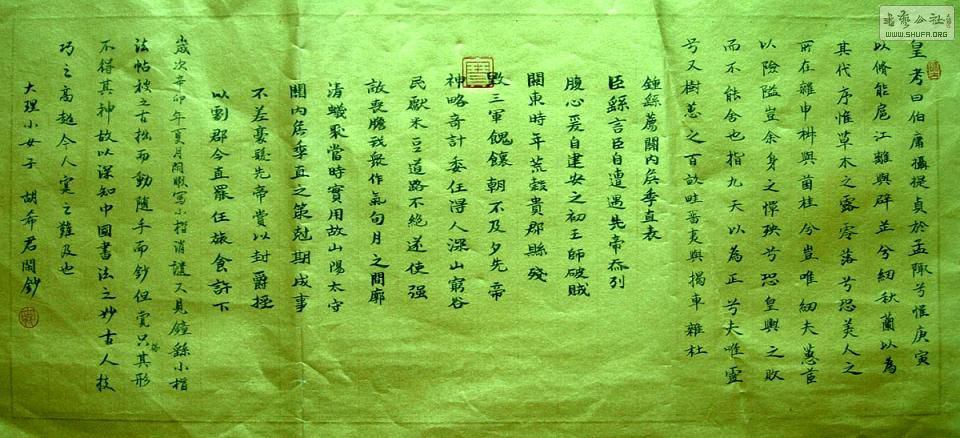 書法公社
WWW.SHUFA.ORG
皇考曰伯庸攝提貞於孟陬兮惟庚寅
以脩能扈江離與辟芷兮紉秋蘭以為
其代序惟草木之零落兮恐美人之
所在雜申椒與菌桂兮豈唯紉夫蕙茝
以險隘豈余身之憚殃兮恐皇輿之敗
而不能舍也指九天以為正兮夫唯靈
兮又樹蕙之百畝畦留夷與揭車雜杜
鍾繇薦關內侯季直表
臣繇言臣自遭遇先帝忝列
腹心爰自建安之初王師破賊
關東時年荒穀貴郡縣殘
毀三軍餽饟朝不及夕先帝
神略奇計委任得人深山窮谷
民獻米豆道路不絕遂使强
敵喪膽我眾作氣旬月之間廓
清蟻聚當時實用故山陽太守
關內侯季直之策尅期成事
不差豪髮先帝賞以封爵授
以劇郡今直罷任旅食許下
歲次辛卯年夏月閒暇寫小楷消讀又見鍾繇小楷
法帖被之古拙而動隨手而鈔但覺只其形
不得其神故以深知中國書法之妙古人技
巧之高超令人實之難及也
大理小女子 胡希君閒鈔